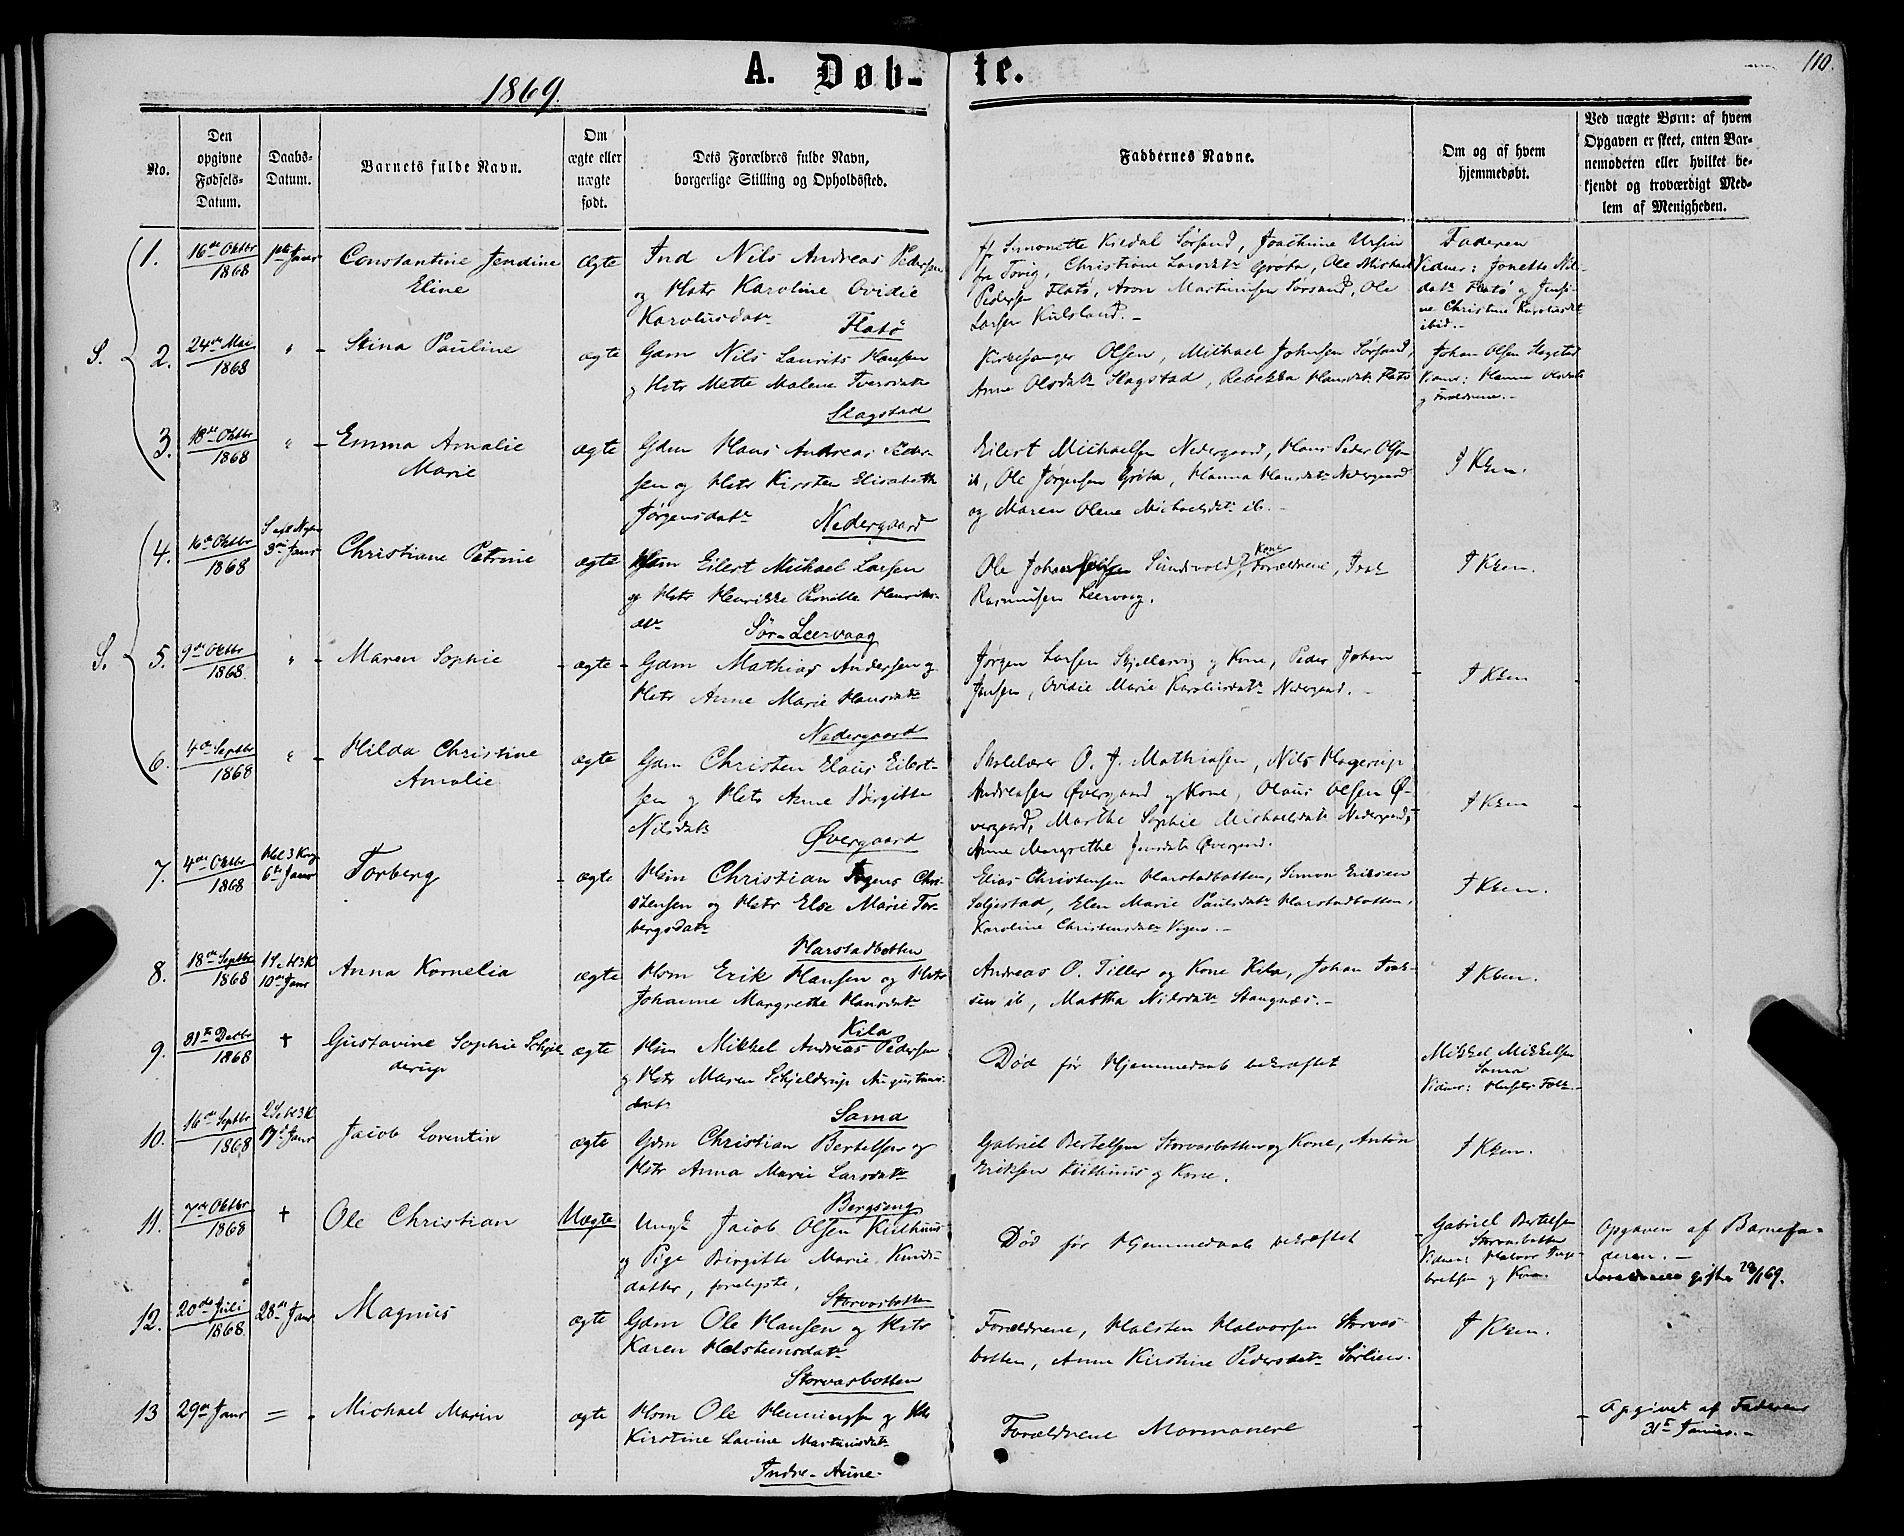 110.
A. Døb- te.
1869.
No.
Den opgivne Fødsels-Datum.
Daabs-Datum.
Barnets fulde Navn.
Om ægte eller uægte født.
Dets Forældres fulde Navn, borgerlige Stilling og Opholdssted.
Faddernes Navne.
Om og af hvem hjemmedøbt.
Ved uægte Børn: af hvem Opgaven er skeet, enten Barnemoderen eller hvilket bekjendt og troværdigt Medlem af Menigheden.
S.
1. 16de Oktbr 1868 1ste Janr Constantine Jendine Eline ægte Ind Nils Andreas Pedersen
og Hstr Karoline Ovidie
Karolusdatr Flatø
Christiane Larsdatr Grøtø, Ole Michael
Pedersen Flatø, Aron Martinusen Sørsand, Ole
Larsen Kulsland. -
Faderen
2. 24de Mai 1868 " - Stina Pauline ægte Gdm Nils Laurits Hansen
og Hstr Mette Malene Iversdatr
Slagstad
Kirkesanger Olsen, Michael Johnsen Sørsand,
Anne Olsdatr Slagstad, Rebekka Hansdatr Flatø
Johan Olsen Slagstad
og Forældrene. -
3. 18de Oktbr 1868 " - Emma Amalie Marie ægte Gdm Hans Andreas Peder-
sen og Hstr Kirsten Elisabeth
Jørgensdatr Nedergaard
Eilert Michaelsen Nedergaard, Hans Peder Olsen
ib, Ole Jørgensen Grøtø, Hanna Hansdatr Nedergaard
og Maren Olene Michaelsdatr ib. -
I Kken.
S.
4. 16de Oktbr 1868 3die Janr Christiane Petrine ægte Eilert Michael Larsen
og Hstr Henrikke Pernille Henriks-
datr Sør-Leervaag
Forældrene,
Rasmusen Leervaag.
I Kken.
5. 9de Oktbr 1868 " - Maren Sophie - ægte - Gdm Mathias Andersen og
Hstr Anne Marie Hansdatr
Nedergaard
Jørgen Larsen Skjellesvig og Kone, Peder Johan
Jensen, Ovidie Marie Karolusdatr Nedergaard. -
I Kken
6. 4de Septbr 1868 " - Hilda Christine Amalie ægte Gdm Christen Claus Eilert-
sen og Hstr Anne Birgitte
Nilsdatr Øvergaard
Skolelærer O. J. Mathiasen, Nils Hagerup
Andreasen Øvergaard og Kone, Olaus Olsen Ø-
vergaard, Marthe Sophie Michaelsdatr Nedergaard,
Anne Margrethe Jensdatr Øvergaard.
I Kken
7. 4de Oktbr 1868 Hel 3 Kong 6te Janr Torberg - ægte Hsm Christian Chri-
stensen og Hstr Else Marie Tor-
bergsdatr Harstadbotten
Elias Christensen Harstadbotten, Simon Eriksen
Seljestad, Elen Marie Paulsdatr Harstadbotten,
Karoline Christensdatr
I Kken.
8. 18de Septbr 1868 10de Janr Anna Kornelia ægte Hsm Erik Hansen og Hstr
Johanne Margrethe Hansdatr
Kila
Andreas O. Tiller og Kone Kila, Johan Isak-
sen ib, Martha Nilsdatr Stangnæs. -
I Kken.
9. 31te Decbr 1868 † Gustavine Sophie Schjel-
derup ægte Hsm Mikkel Andreas Pedersen
og Hstr Maren Schjelderup Augustinus-
datr Sama
Død før Hjemmedaab bekræftet
Mikkel Mikkelsen
Sama
10. 16de Septbr 1868 17de Janr Jacob Lorentin ægte Gdm Christian Bertelsen og
Hstr Anna Marie Larsdatr
Bergseng
Gabriel Bertelsen Storvasbotten og Kone, Anton
Eriksen Kilhuus og Kone.
I Kken.
11. 7de Oktbr 1868 † Ole Christian Uægte Ungk Jacob Olsen Kilhuus
og Pige Birgitte Marie Knuds-
datter, forelskte. Storvasbotten
Død før Hjemmedaab bekræftet
Gabriel Bertelsen
Storvasbotten
og Kone.
Opgaven af Barnefa-
deren. -
Forældrene gifte
12. 20de Juli 1868 28de Janr Magnus ægte Gdm Ole Hansen og Hstr
Karen Halstensdatr
Storvasbotten
Forældrene, Halsten Halvorsen Storvas-
botten, Anne Kirstine Pedersdatr Sørlien.
I Kken.
13 29de Janr = - Michael Marin ægte Hsm Ole Henningsen og Hstr
Kirstine Lavine Martinusdatr
Indre-Aune -
Forældrene Mormonere
- Opgivet af Faderen
31te Januar. -